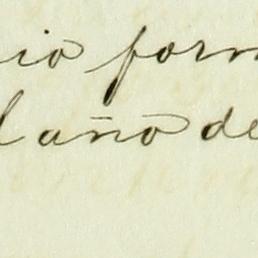 io form
l año de